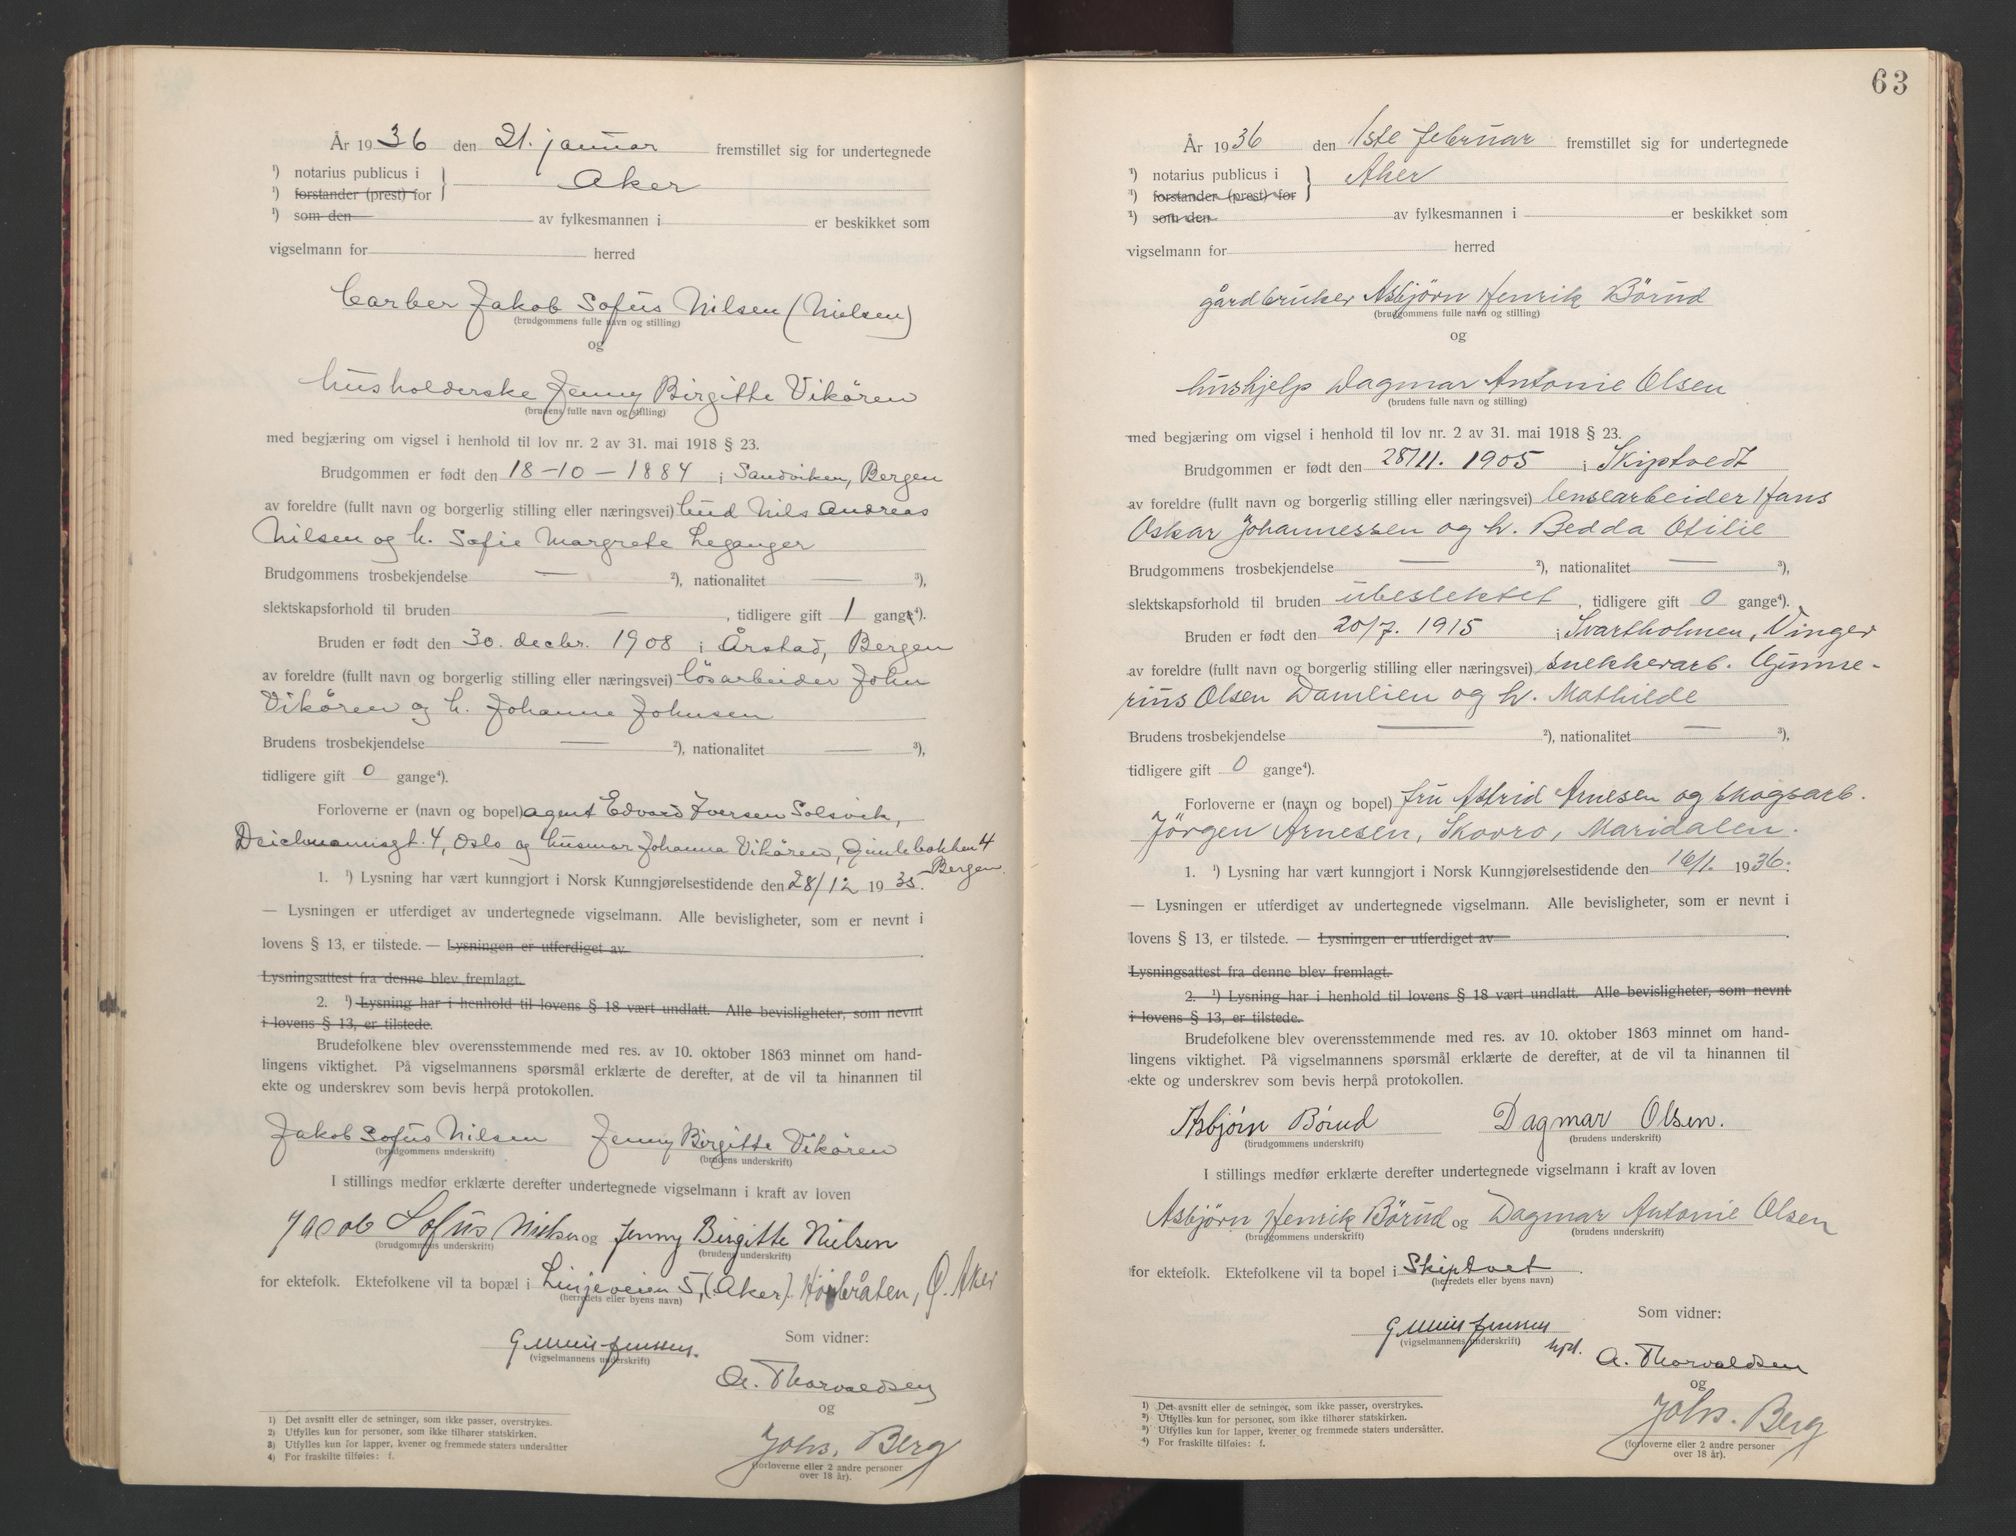 År 1936 den 21. januar fremstillet sig for undertegnede
¹) notarius publicus i
¹) forstander (prest) for } Aker
¹) som den av fylkesmannen i er beskikket som
vigselmann for herred
barber Jakob Sofus Nilsen (Nielsen)
(brudgommens fulle navn og stilling)
og
husholderske Jenny Birgitte Vikören
(brudens fulle navn og stilling)
med begjæring om vigsel i henhold til lov nr. 2 av 31. mai 1918 § 23.
Brudgommen er født den 18-10-1884 i Sandviken, Bergen
av foreldre (fullt navn og borgerlig stilling eller næringsvei) bud Nils Andreas
Nilsen og h. Sofie Margrete Leganger
Brudgommens trosbekjendelse — ²), nationalitet — ³),
slektskapsforhold til bruden — , tidligere gift 1 gang⁴).
Bruden er født den 30. decbr. 1908 i Årstad, Bergen
av foreldre (fullt navn og borgerlig stilling eller næringsvei) lösarbeider John
Vikören og h. Johanne Johnsen
Brudens trosbekjendelse — ²), nationalitet — ³),
tidligere gift 0 gange⁴).
Forloverne er (navn og bopel) agent Edvard Iversen Solsvik,
Deichmannsgt. 4, Oslo og husmor Johanna Vikören, Gimlebakken 4
Bergen.
1. ¹) Lysning har vært kunngjort i Norsk Kunngjørelsestidende den 28/12 1935.
— Lysningen er utferdiget av undertegnede vigselmann. Alle bevisligheter, som er nevnt i
lovens § 13, er tilstede. — Lysningen er utferdiget av
Lysningsattest fra denne blev fremlagt.
2. ¹) Lysning har i henhold til lovens § 18 vært undlatt. Alle bevisligheter, som nevnt
i lovens § 13, er tilstede.
Brudefolkene blev overensstemmende med res. av 10. oktober 1863 minnet om hand-
lingens viktighet. På vigselmannens spørsmål erklærte de derefter, at de vil ta hinannen til
ekte og underskrev som bevis herpå protokollen.
Jakob Sofus Nilsen Jenny Birgitte Vikören
(brudgommens underskrift) (brudens underskrift)
I stillings medfør erklærte derefter undertegnede vigselmann i kraft av loven
Jacob Sofus Nielsen og Jenny Birgitte Nielsen
(brudgommens underskrift) (brudens underskrift)
for ektefolk. Ektefolkene vil ta bopæl i Linjeveien 5, (Aker). Höybråten, Ø. Aker
(herredets eller byens navn)
Som vidner:
(vigselmannens underskrift)
A. Thorvaldsen
og
Johs. Berg
(forloverne eller 2 andre personer
over 18 år).
1) Det avsnitt eller de setninger, som ikke passer, overstrykes.
2) Utfylles kun for personer, som ikke tilhører statskirken.
3) Utfylles kun for lapper, kvener og fremmede staters undersåtter
4) For fraskilte tilføies: f.
63
År 1936 den 1ste februar fremstillet sig for undertegnede
¹) notarius publicus i
¹) forstander (prest) for } Aker
¹) som den av fylkesmannen i er beskikket som
vigselmann for herred
gårdbruker Asbjörn Henrik Börud
(brudgommens fulle navn og stilling)
og
hushjelp Dagmar Antonie Olsen
(brudens fulle navn og stilling)
med begjæring om vigsel i henhold til lov nr. 2 av 31. mai 1918 § 23.
Brudgommen er født den 28/11. 1905 i Skiptvedt
av foreldre (fullt navn og borgerlig stilling eller næringsvei) lensearbeider Hans
Oskar Johannessen og h. Bedda Otilie
Brudgommens trosbekjendelse — ²), nationalitet — ³),
slektskapsforhold til bruden ubeslektet , tidligere gift 0 gange⁴).
Bruden er født den 20/7. 1915 i Svartholmen, Vinger
av foreldre (fullt navn og borgerlig stilling eller næringsvei) snekkerarb. Gunne-
rius Olsen Damlien og h. Mathilde
Brudens trosbekjendelse — ²), nationalitet — ³),
tidligere gift 0 gange⁴).
Forloverne er (navn og bopel) fru Astrid Arnesen og skogsarb.
Jörgen Arnesen, Skovro, Maridalen.
1. ¹) Lysning har vært kunngjort i Norsk Kunngjørelsestidende den 16/1. 1936.
— Lysningen er utferdiget av undertegnede vigselmann. Alle bevisligheter, som er nevnt i
lovens § 13, er tilstede. — Lysningen er utferdiget av
Lysningsattest fra denne blev fremlagt.
2. ¹) Lysning har i henhold til lovens § 18 vært undlatt. Alle bevisligheter, som nevnt
i lovens § 13, er tilstede.
Brudefolkene blev overensstemmende med res. av 10. oktober 1863 minnet om hand-
lingens viktighet. På vigselmannens spørsmål erklærte de derefter, at de vil ta hinannen til
ekte og underskrev som bevis herpå protokollen.
Asbjörn Börud Dagmar Olsen.
(brudgommens underskrift) (brudens underskrift)
I stillings medfør erklærte derefter undertegnede vigselmann i kraft av loven
Asbjörn Henrik Börud og Dagmar Antonie Olsen
(brudgommens underskrift) (brudens underskrift)
for ektefolk. Ektefolkene vil ta bopel i Skiptvet
(herredets eller byens navn)
Som vidner:
(vigselmannens underskrift)
A. Thorvaldsen
og
Johs. Berg
(forloverne eller 2 andre personer
over 18 år).
1) Det avsnitt eller de setninger, som ikke passer, overstrykes.
2) Utfylles kun for personer, som ikke tilhører statskirken.
3) Utfylles kun for lapper, kvener og fremmede staters undersåtter.
4) For fraskilte tilføies: f.